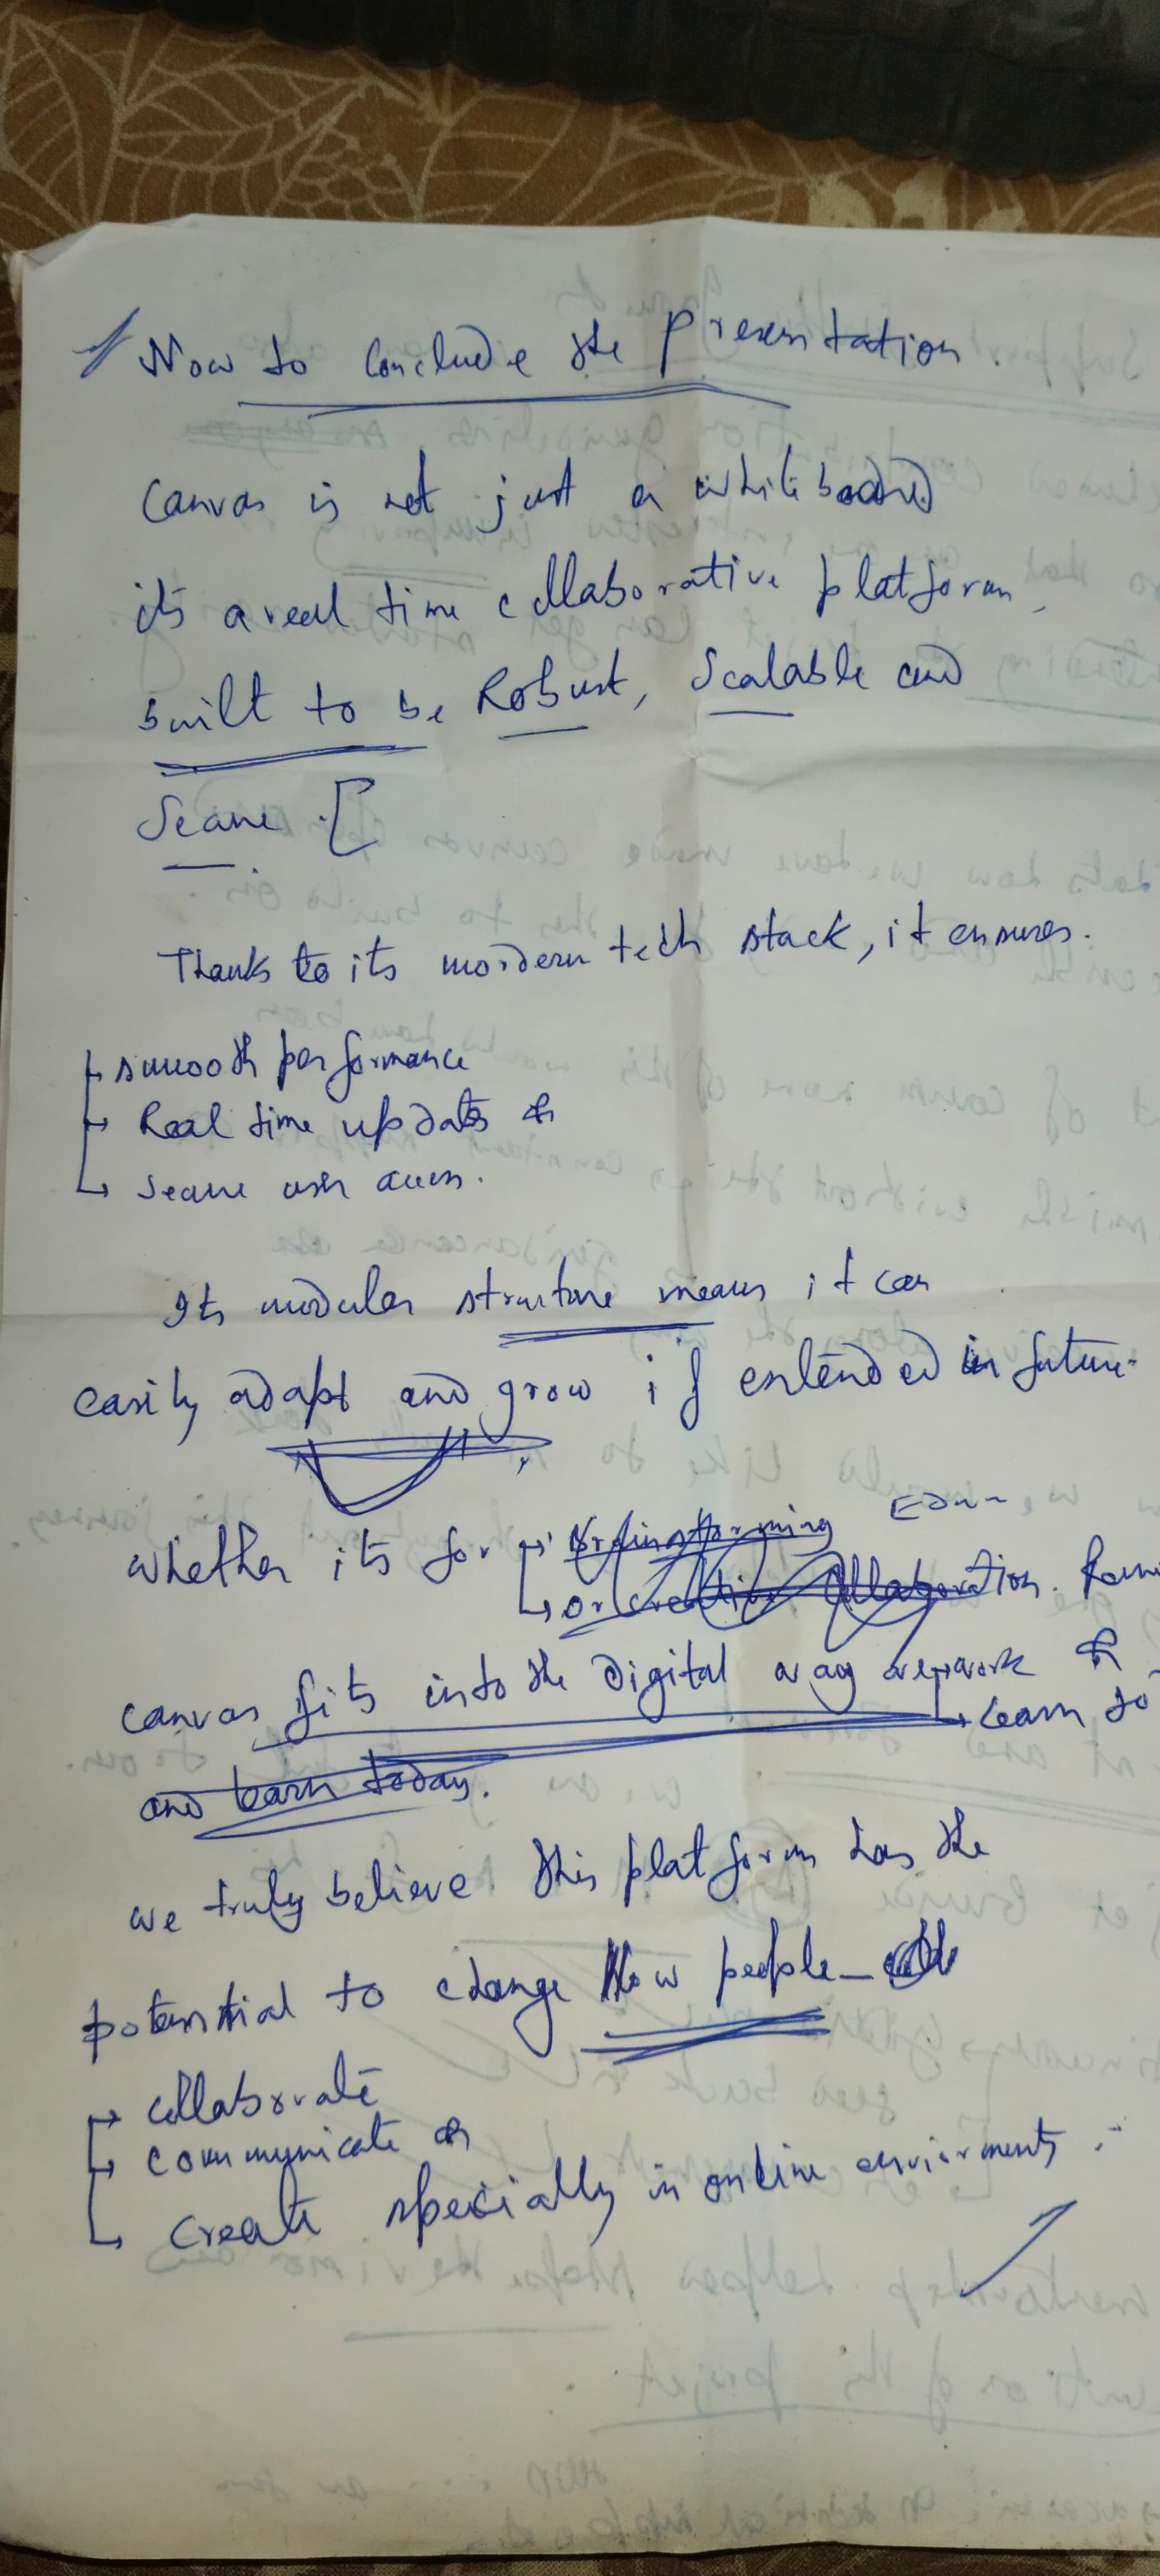 Now to conclude the Presentation.
canvas is not just a whiteboard
its a real time collaborative platform
built to be Robust, Scalable and
Secure.
Thanks to its mordern tech stack, it ensures.
smooth performance
Real time updates &
secure user access.
Its modular structure means it can
easily adapt and grow if extended in future.
whether its for brainstorming
or creative collaboration.
canvas fits into the digital way we work &
learn to
and learn today.
we truly believe this platform has the
potential to change How people
collaborate
communicate &
create specially in online enviorments.